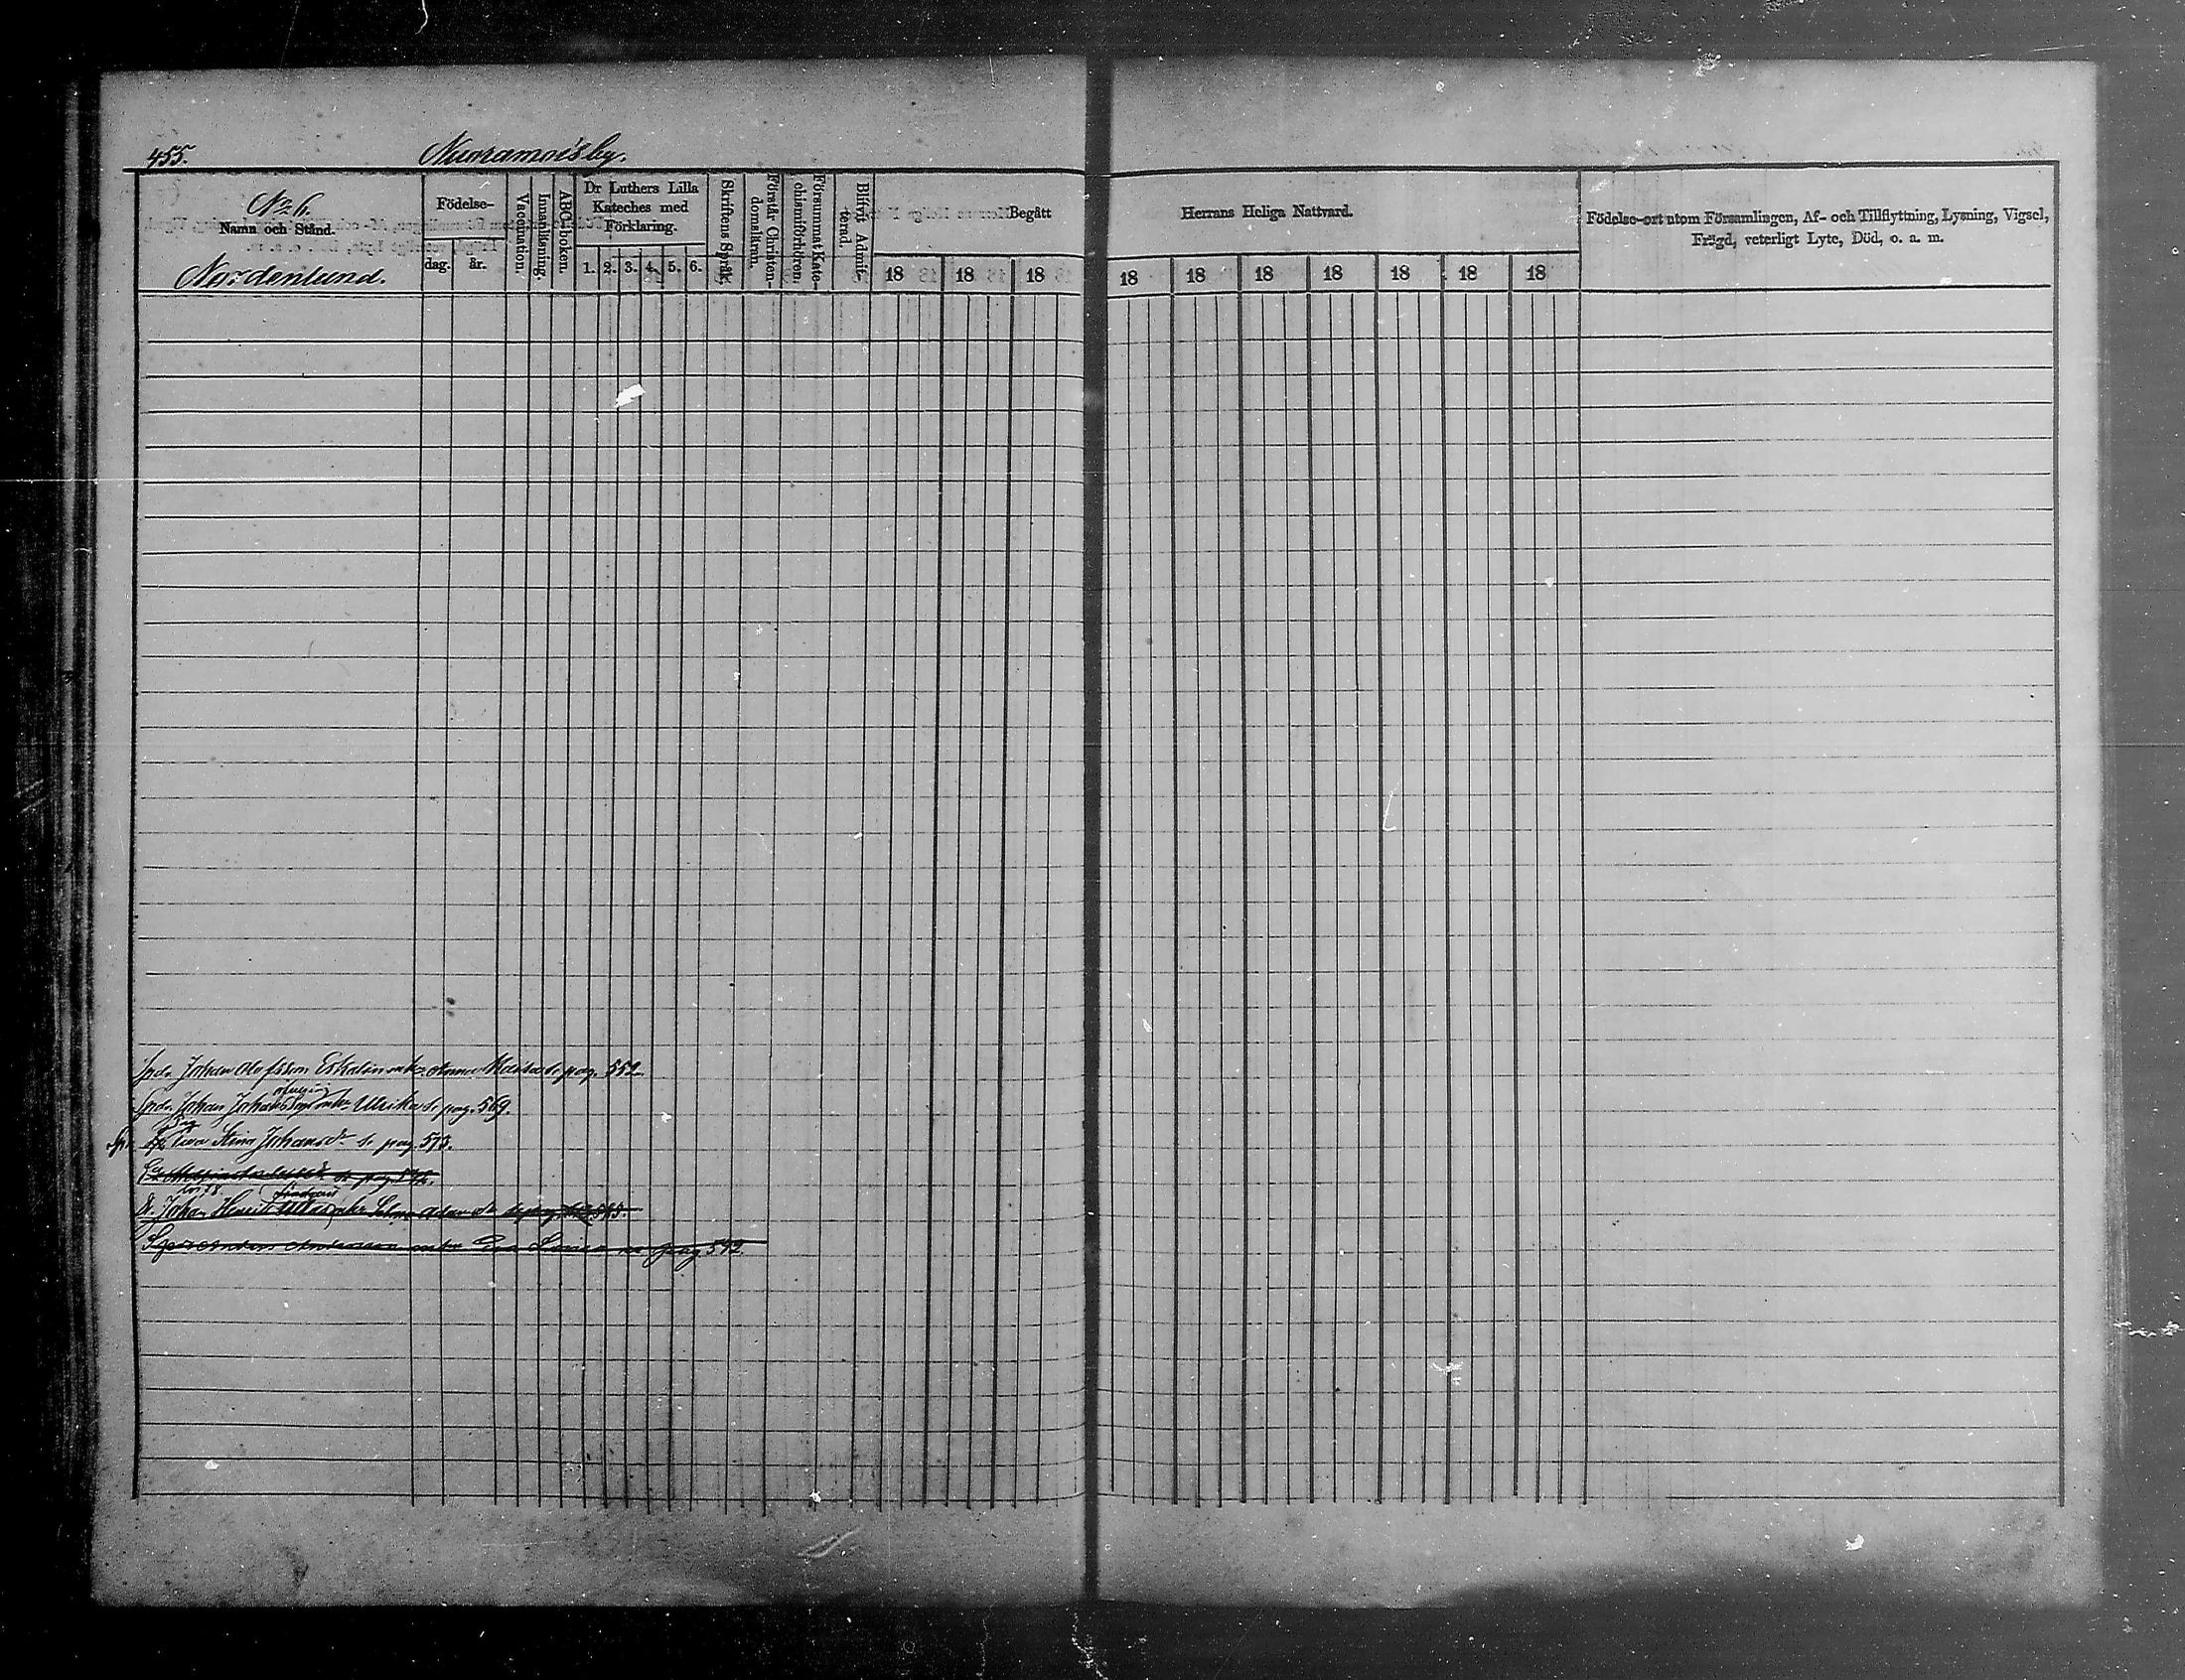 455.
Nuoramoisby.
No 6.
Namn och Stånd.
Nordenlund.
Födelse-
dag. år.
Vaccination.
Innanläsning.
ABC-boken.
Dr Luthers Lilla
Kateches med
Förklaring.
1. 2. 3. 4. 5. 6.
Skriftens Språk.
Förstår Christen-
domsläran.
Försummat Kate-
chismiförhören.
Blifvit Admit-
terad.
Begått
18 18 18
Herrans Heliga Nattvard.
18 18 18 18 18 18 18
Födelse-ort utom Församlingen, Af- och Tillflyttning, Lysning, Vigsel,
Frägd, veterligt Lyte, Död, o. a. m.
Johan Olofsson Eskelin Maisa s. pag. 552.
Johan Ulrika s. pag. 569.
Stina Johansdr s. pag. 573.
s. pag.
Lindqvist
Johan Henric
Lovisa pag 592.